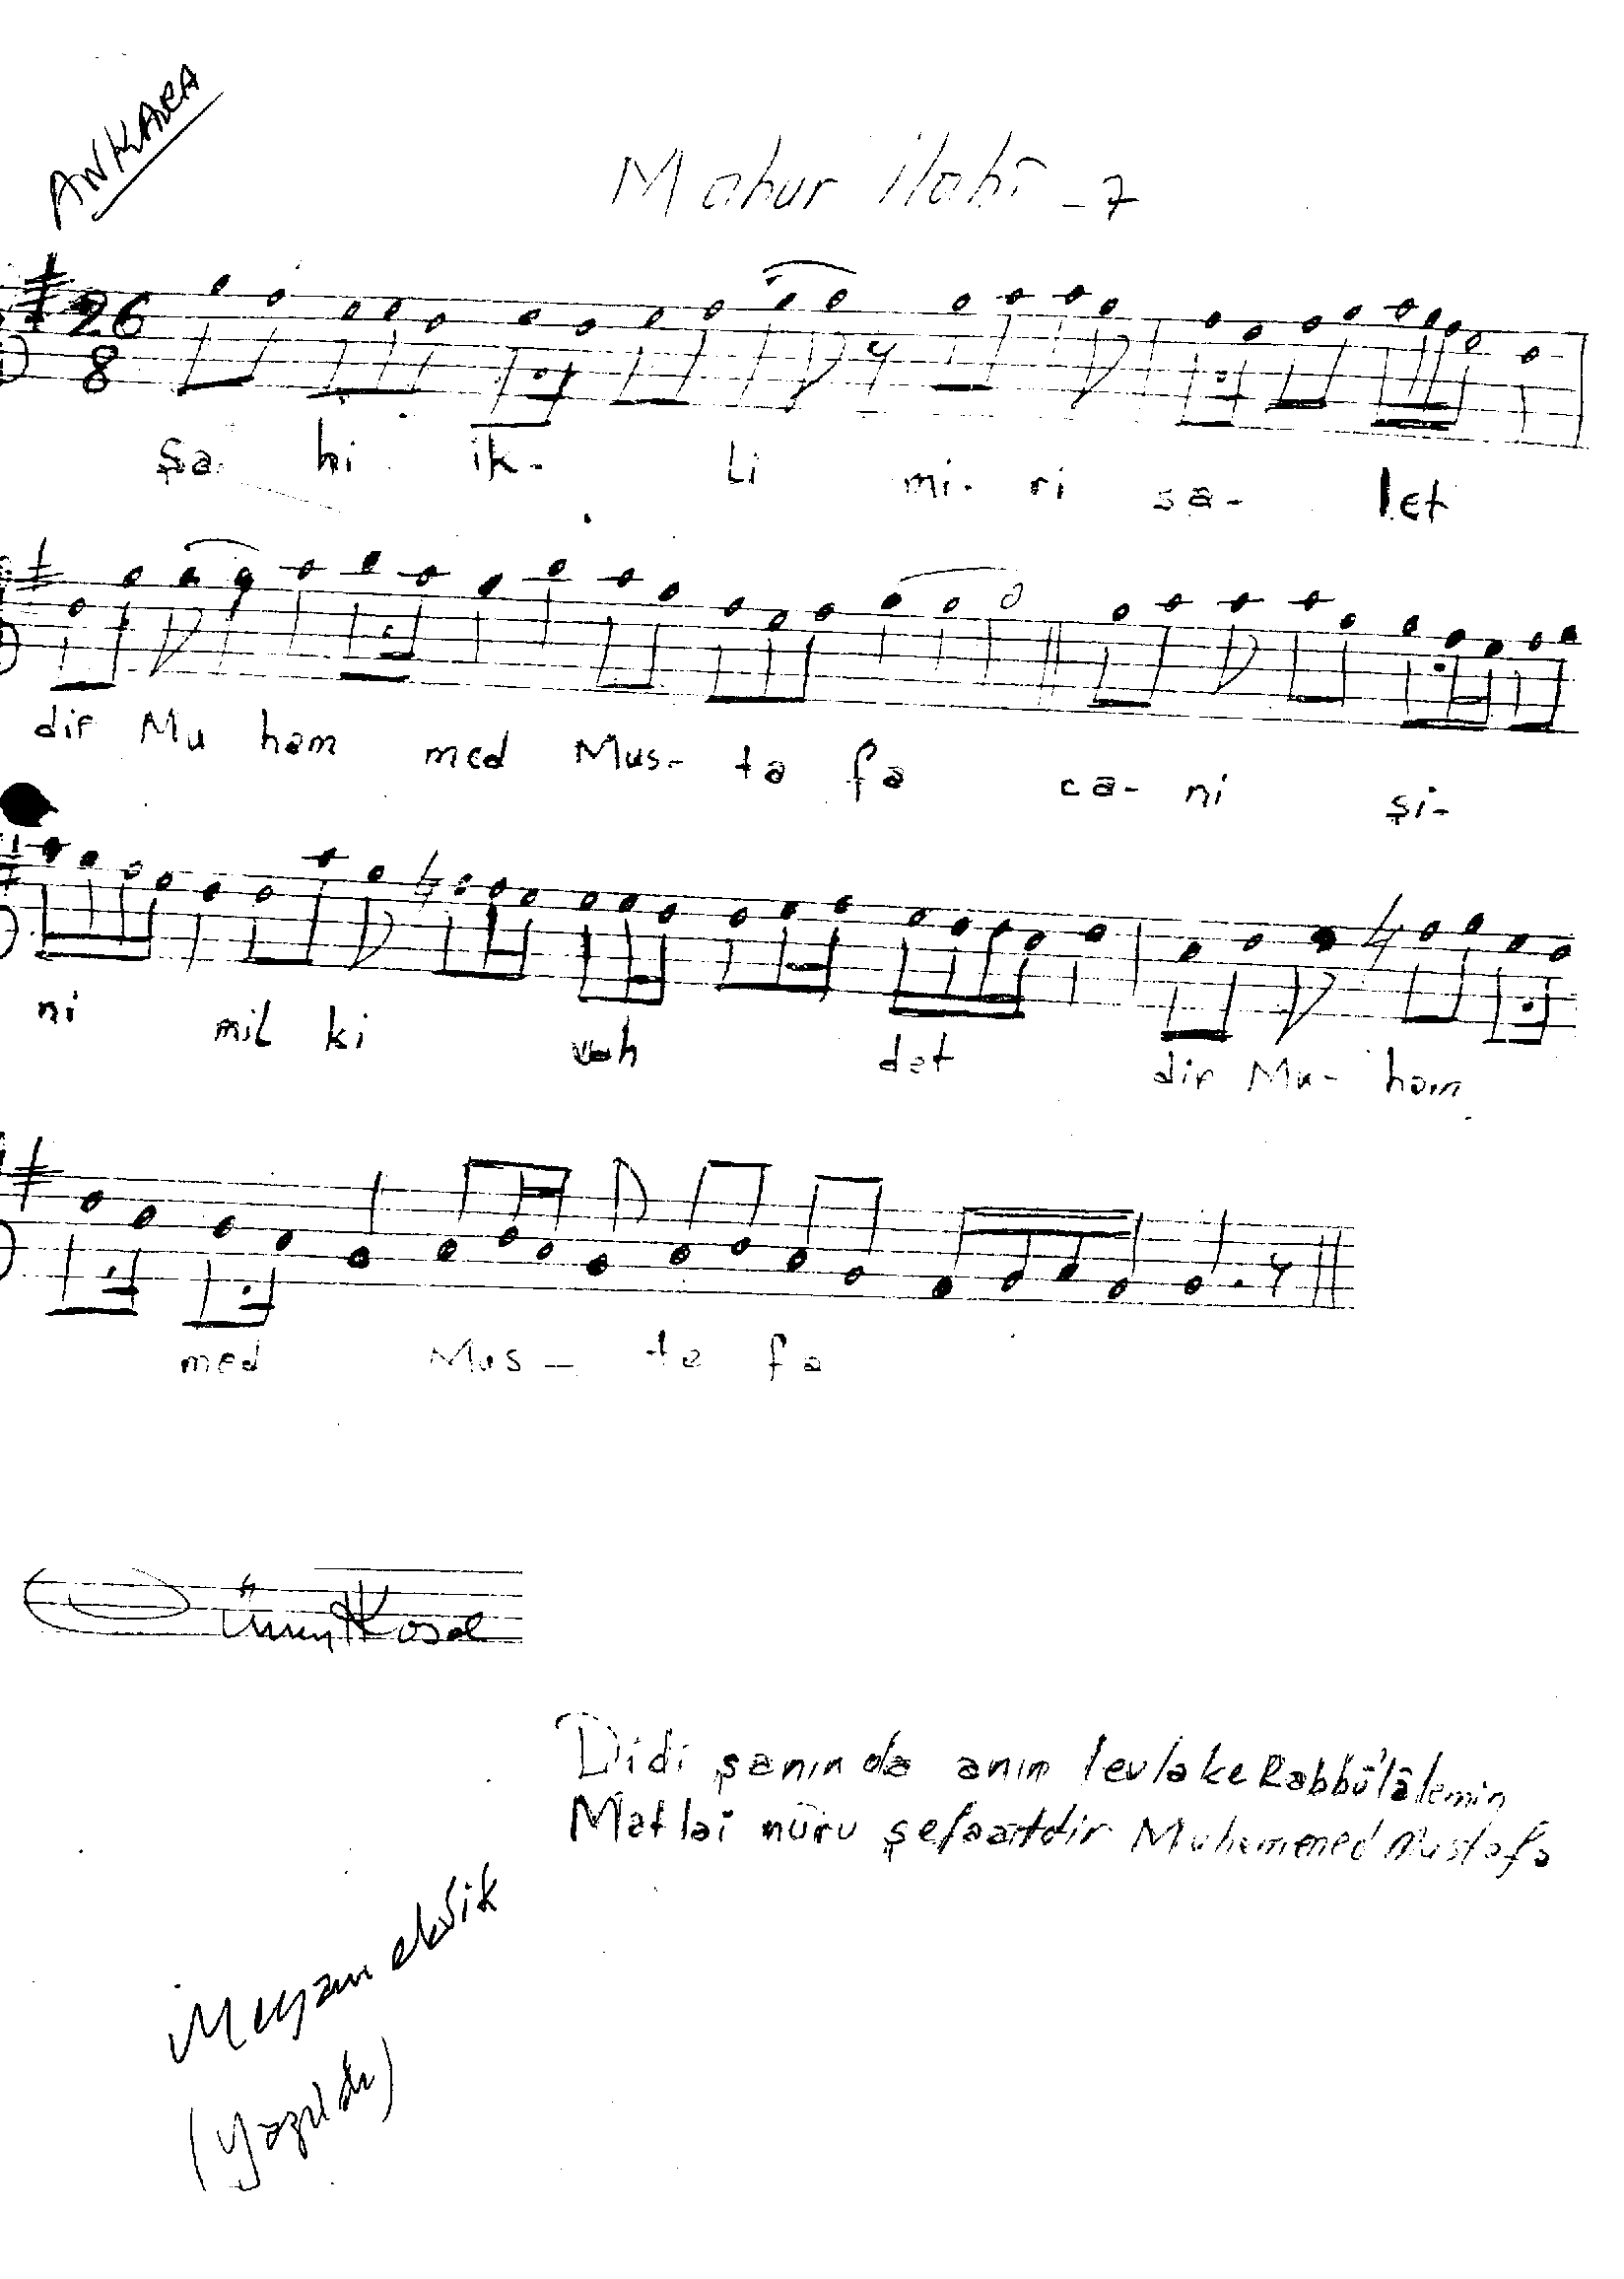 ANKARA
Mahur ilahî - 7
26
8
Şa- hi ik- Li mi- ri sa- let
dir Mu ham med Mus- ta fa ca- ni şi-
ni mil ki vah det dir Mu- ham
med Mus- ta fa
Didi şanında anın levlake Rabbülâlemin
Matlai nûru şefaatdir Muhammed Mustafa
Meyanı eksik
(yazıldı)